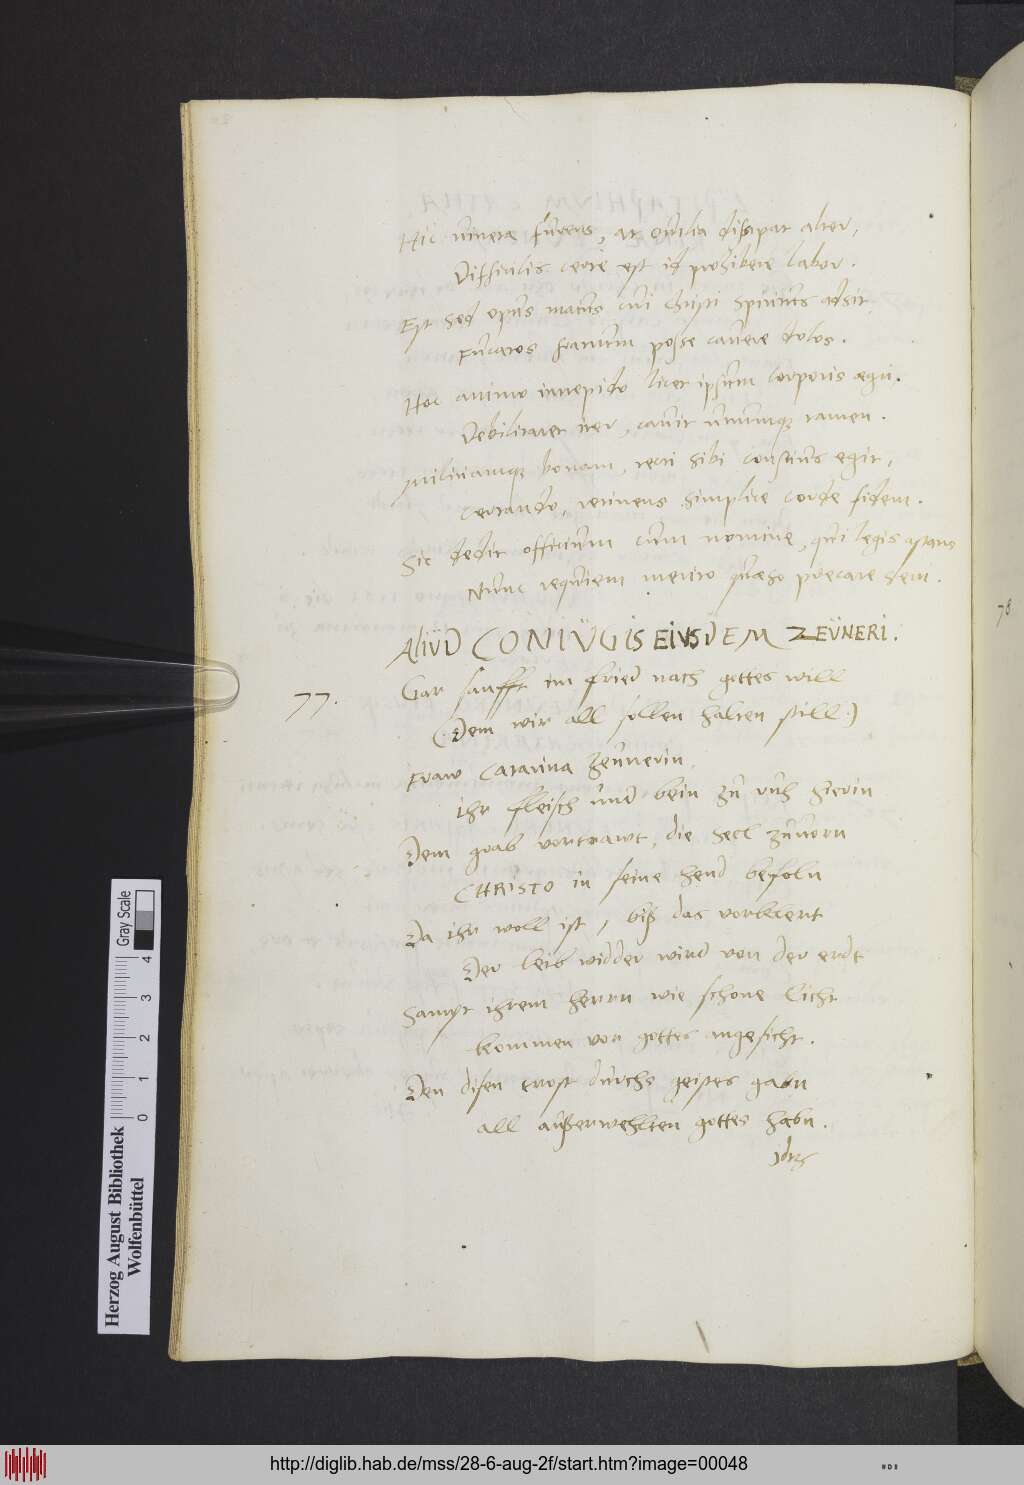 Hic vineta furens, at ovilia dissipat alter,
Difficilis certe est id prohibere labor.
Est sed opus macte cui Christi spiritus adsit
Fucatos fratrum posse cavere dolos.
Hoc animo intrepido licet ipsum corporis aegri
Debilitaret iter, cavit utrumque tamen.
Militiamque bonam, recti sibi conscius egit,
Certando, retinens simplice corde fidem.
Sic dedit officium cum nomine, qui legis astans
Nunc requiem merito quaeso precare seni.
ALIUD CONIUGIS EIUSDEM ZEUNERI.
77.
Gar sanfft im fried nach gottes will
(Dem wir all sollen halten still)
Fraw Catarina Zeunerin
ihr fleisch und bein zu ruh hierin
Dem grab vortrawt, die seel zuvorn
CHRISTO in seine hend befoln
Da ihr woll ist, biß das vorklert
Der leib widder wird von der erdt
Sampt ihrem herrn wie schone licht
kommen vor gottes angesicht.
Den disen trost durchs geistes gabn
all außerwehlten gottes habn.
78
Herzog August Bibliothek
Wolfenbüttel
Gray Scale
0 1 2 3 4
http://diglib.hab.de/mss/28-6-aug-2f/start.htm?image=00048